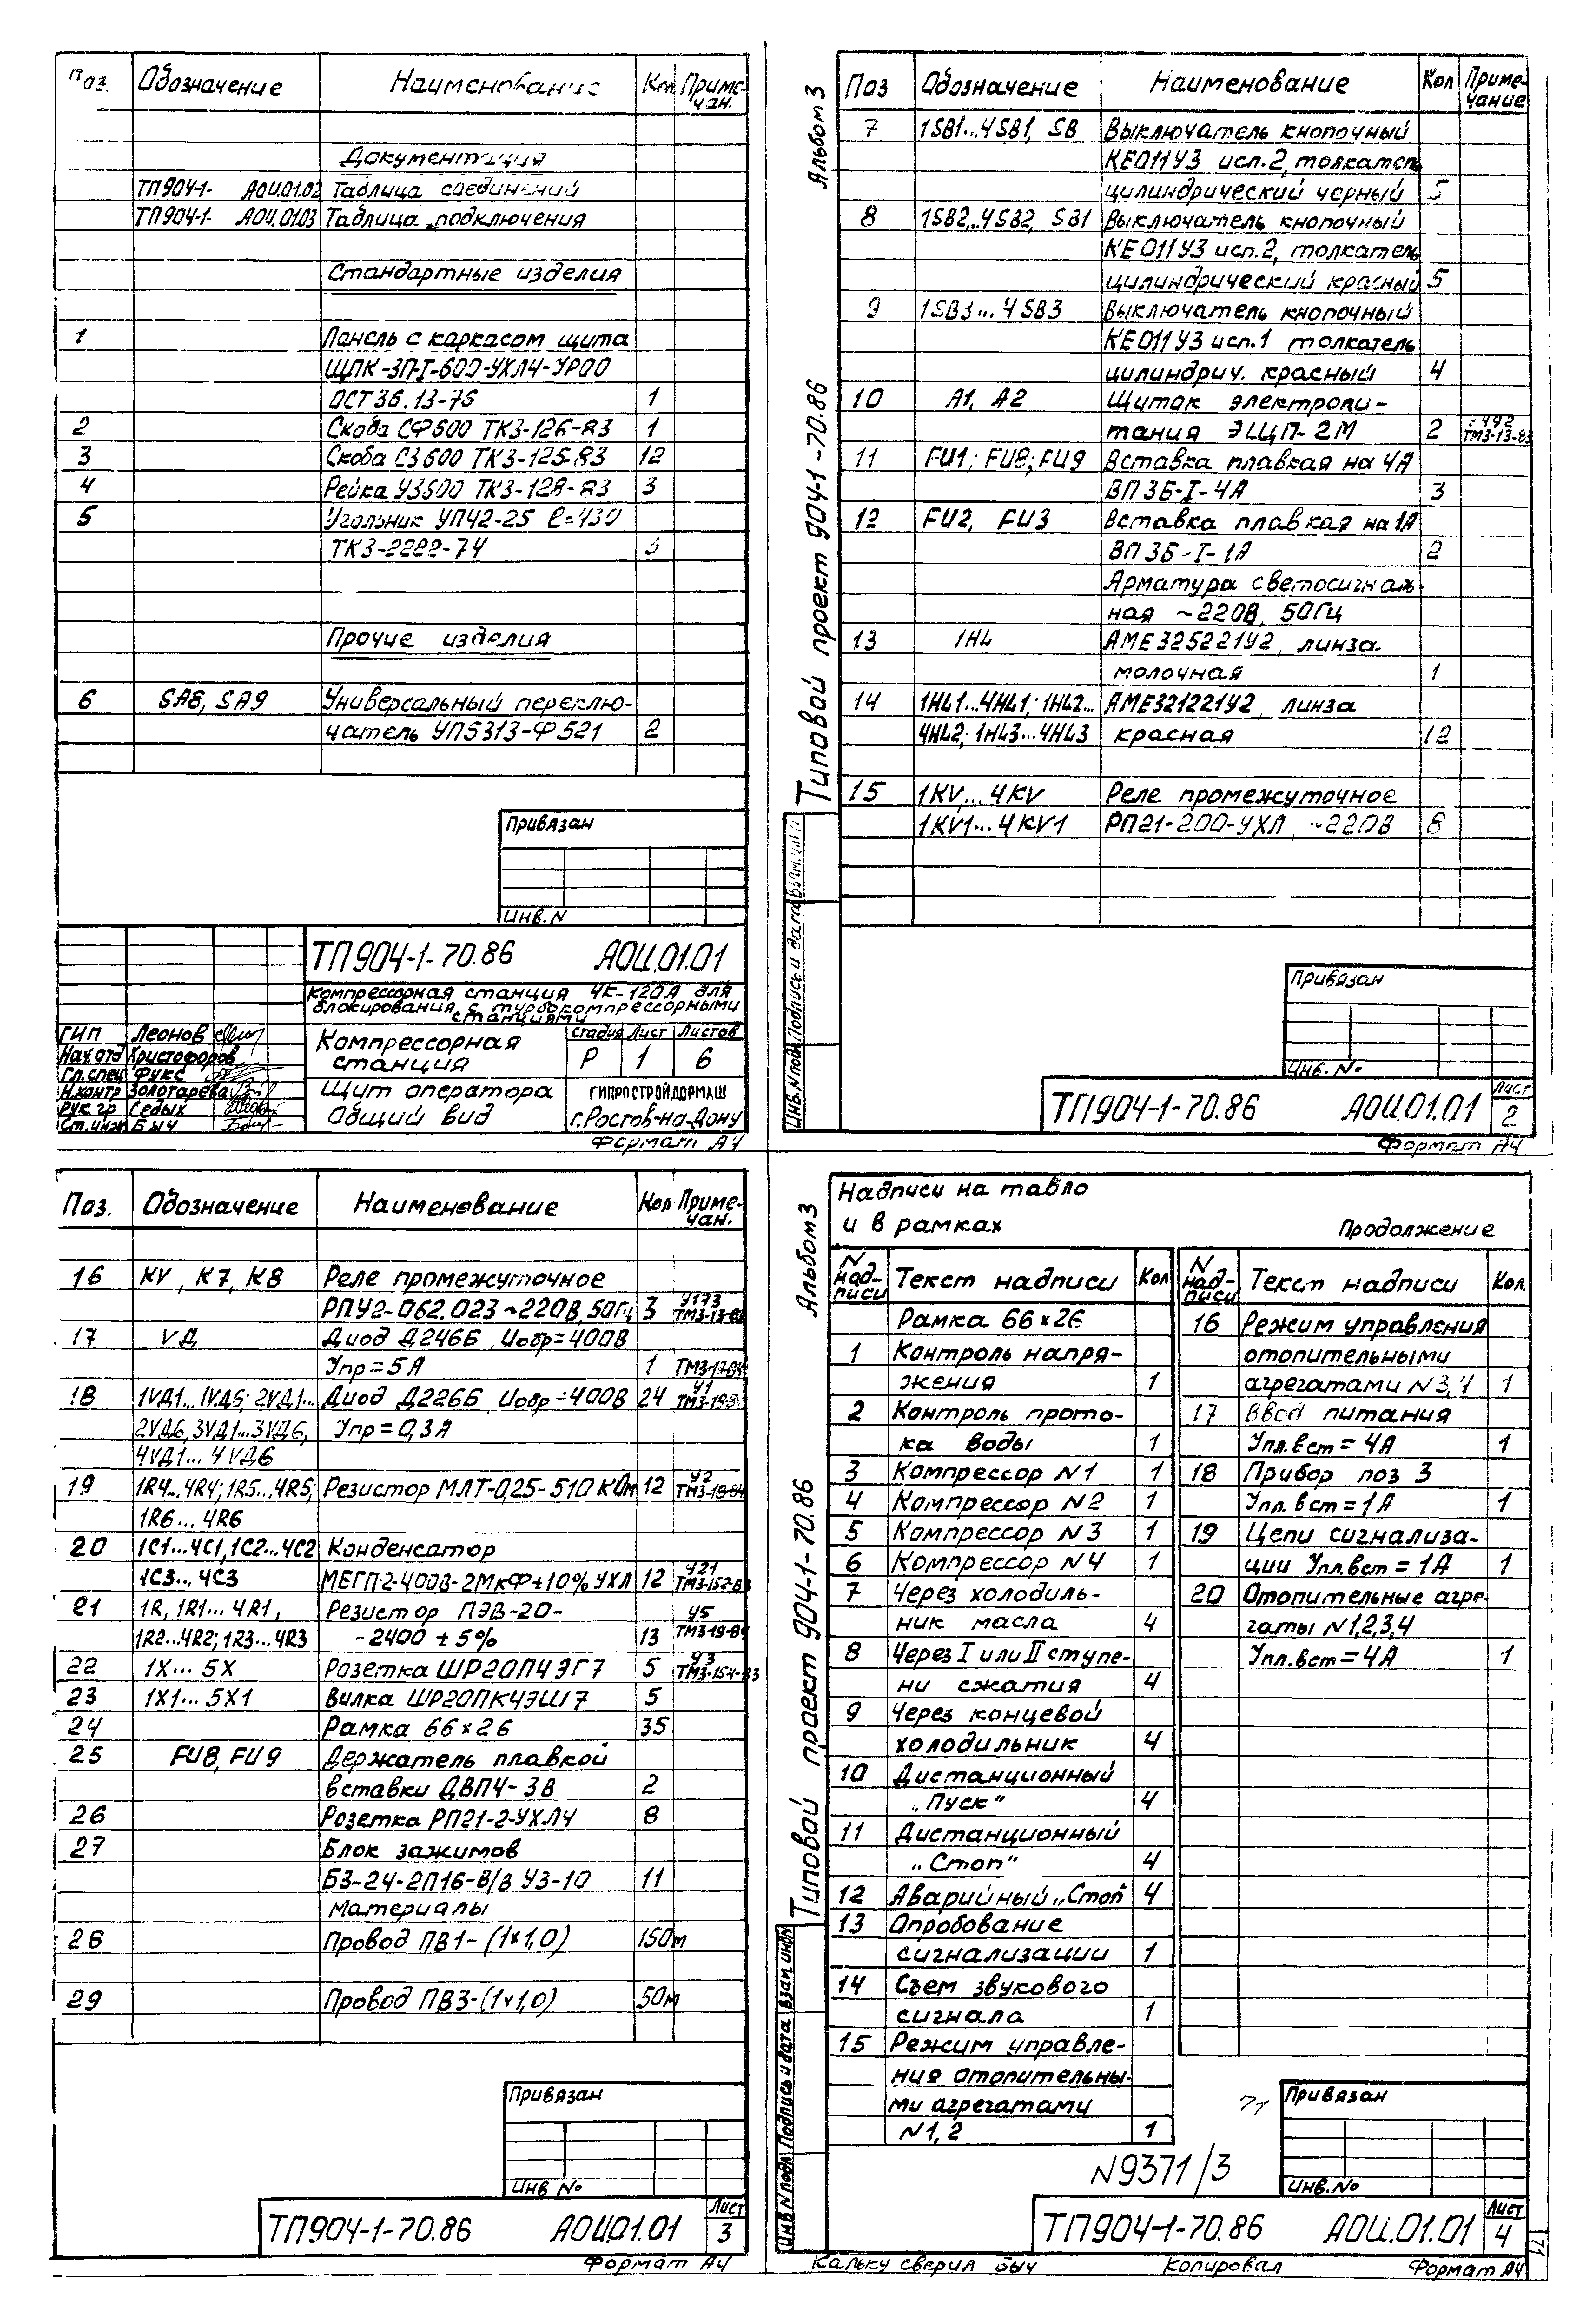 Поз. Обозначение Наименование Кол Примечан.
Документация
ТП904-1- АОЦ.01.02 Таблица соединений
ТП904-1- АОЦ.01.03 Таблица подключения
Стандартные изделия
1 Панель с каркасом щита
ЩПК-ЗП-I-600-УХЛ4-УР00
ОСТ36.13-76 1
2 Скоба СФ600 ТК3-126-83 1
3 Скоба С3600 ТК3-125-83 12
4 Рейка У3600 ТК3-128-83 3
5 Угольник УП42-25 ℓ=430
ТК3-2282-74
Прочие изделия
6 SA8, SA9 Универсальный переклю-
чатель УП5313-Ф521 2
Привязан
Инв.N
ТП904-1-70.86 АОЦ.01.01
Компрессорная станция 4К-120А для
блокирования с турбокомпрессорными
станциями
ГИП Леонов
Нач.отд Христофоров
Гл.спец Фукс
Н.контр Золотарева
Рук.гр Седых
Ст.инж Быч
Компрессорная
станция
Стадия Лист Листов
Р 1 6
Щит оператора
Общий вид
ГИПРОСТРОЙДОРМАШ
г.Ростов-на-Дону
Формат А4
Альбом 3
Типовой проект 904-1-70.86
Поз Обозначение Наименование Кол Приме-
чание
7 1SB1...4SB1, SB Выключатель кнопочный
КЕ011У3 исп.2, толкатель
цилиндрический черный 5
8 1SB2...4SB2, SB1 Выключатель кнопочный
КЕ011У3 исп.2, толкатель
цилиндрический красный 5
9 1SB3...4SB3 Выключатель кнопочный
КЕ011У3 исп.1 толкатель
цилиндрич. красный 4
10 A1, A2 Щиток электропи-
тания ЭЩП-2М 2 ТМ3-13-83
11 FU1; FU8; FU9 Вставка плавкая на 4А
ВП3Б-I-4А 3
12 FU2, FU3 Вставка плавкая на 1А
ВП3Б-I-1А 2
Арматура светосигналь-
ная ~220В, 50Гц
13 1HL АМЕ325221У2, линза
молочная 1
14 1HL1...4HL1; 1HL2... АМЕ321221У2, линза
4HL2; 1HL3...4HL3 красная 12
15 1KV...4KV Реле промежуточное
1KV1...4KV1 РП21-200-УХЛ, ~220В 8
Привязан
Инв.No
Инв.N подл Подпись и дата Взам.инв.N
ТП904-1-70.86 АОЦ.01.01 Лист
2
Формат А4
Поз. Обозначение Наименование Кол Приме-
чан.
16 KV, K7, K8 Реле промежуточное
РПУ2-062.023 ~220В, 50Гц 3 У173 ТМ3-13-83
17 VД Диод Д246Б, Uобр=400В
Упр=5А 1
18 1VД1...1VД6; 2VД1... Диод Д226Б, Uобр=400В 24 У1
2VД6, 3VД1...3VД6, Упр=0,3А
4VД1...4VД6
19 1R4...4R4; 1R5...4R5; Резистор МЛТ-0,25-510 кОм 12 У2 ТМ3-19-84
1R6...4R6
20 1C1...4C1, 1C2...4C2 Конденсатор
1C3...4C3 МБГП-2-400В-2МкФ±10%УХЛ 12 У21 ТМ3-152-83
21 1R, 1R1...4R1, Резистор ПЭВ-20- У5
1R2...4R2; 1R3...4R3 -2400 ±5% 13 ТМ3-19-84
22 1X...5X Розетка ШР20П4ЭГ7 5 У3 ТМ3-154-83
23 1X1...5X1 Вилка ШР20ПК4ЭШ7 5
24 Рамка 66×26 35
25 FU8, FU9 Держатель плавкой
вставки ДВП4-3В 2
26 Розетка РП21-2-УХЛ4 8
27 Блок зажимов
БЗ-24-2П16-В/В У3-10 11
Материалы
28 Провод ПВ1-(1×1,0) 150м
29 Провод ПВ3-(1×1,0) 50м
Привязан
Инв No
ТП904-1-70.86 АОЦ.01.01 Лист
3
Формат А4
Альбом 3
Типовой проект 904-1-70.86
Надписи на табло
и в рамках
Продолжение
N надписи Текст надписи Кол
Рамка 66×26
1 Контроль напря-
жения 1
2 Контроль прото-
ка воды 1
3 Компрессор N1 1
4 Компрессор N2 1
5 Компрессор N3 1
6 Компрессор N4 1
7 Через холодиль-
ник масла 4
8 Через I или II ступе-
ни сжатия 4
9 Через концевой
холодильник 4
10 Дистанционный
„Пуск“ 4
11 Дистанционный
„Стоп“ 4
12 Аварийный „Стоп“ 4
13 Опробование
сигнализации 1
14 Съем звукового
сигнала 1
15 Режим управле-
ния отопительны-
ми агрегатами
N1, 2 1
N надписи Текст надписи Кол.
16 Режим управления
отопительными
агрегатами N3,4 1
17 Ввод питания
Упл.вст=4А 1
18 Прибор поз 3
Упл.вст=1А 1
19 Цепи сигнализа-
ции Упл.вст=1А 1
20 Отопительные агре-
гаты N1,2,3,4
Упл.вст=4А 1
71
N9371/3
Привязан
Инв.No
Инв N подл Подпись и дата Взам.инв N
ТП904-1-70.86 АОЦ.01.01 Лист
4
71
Кальку сверил Быч Копировал Формат А4